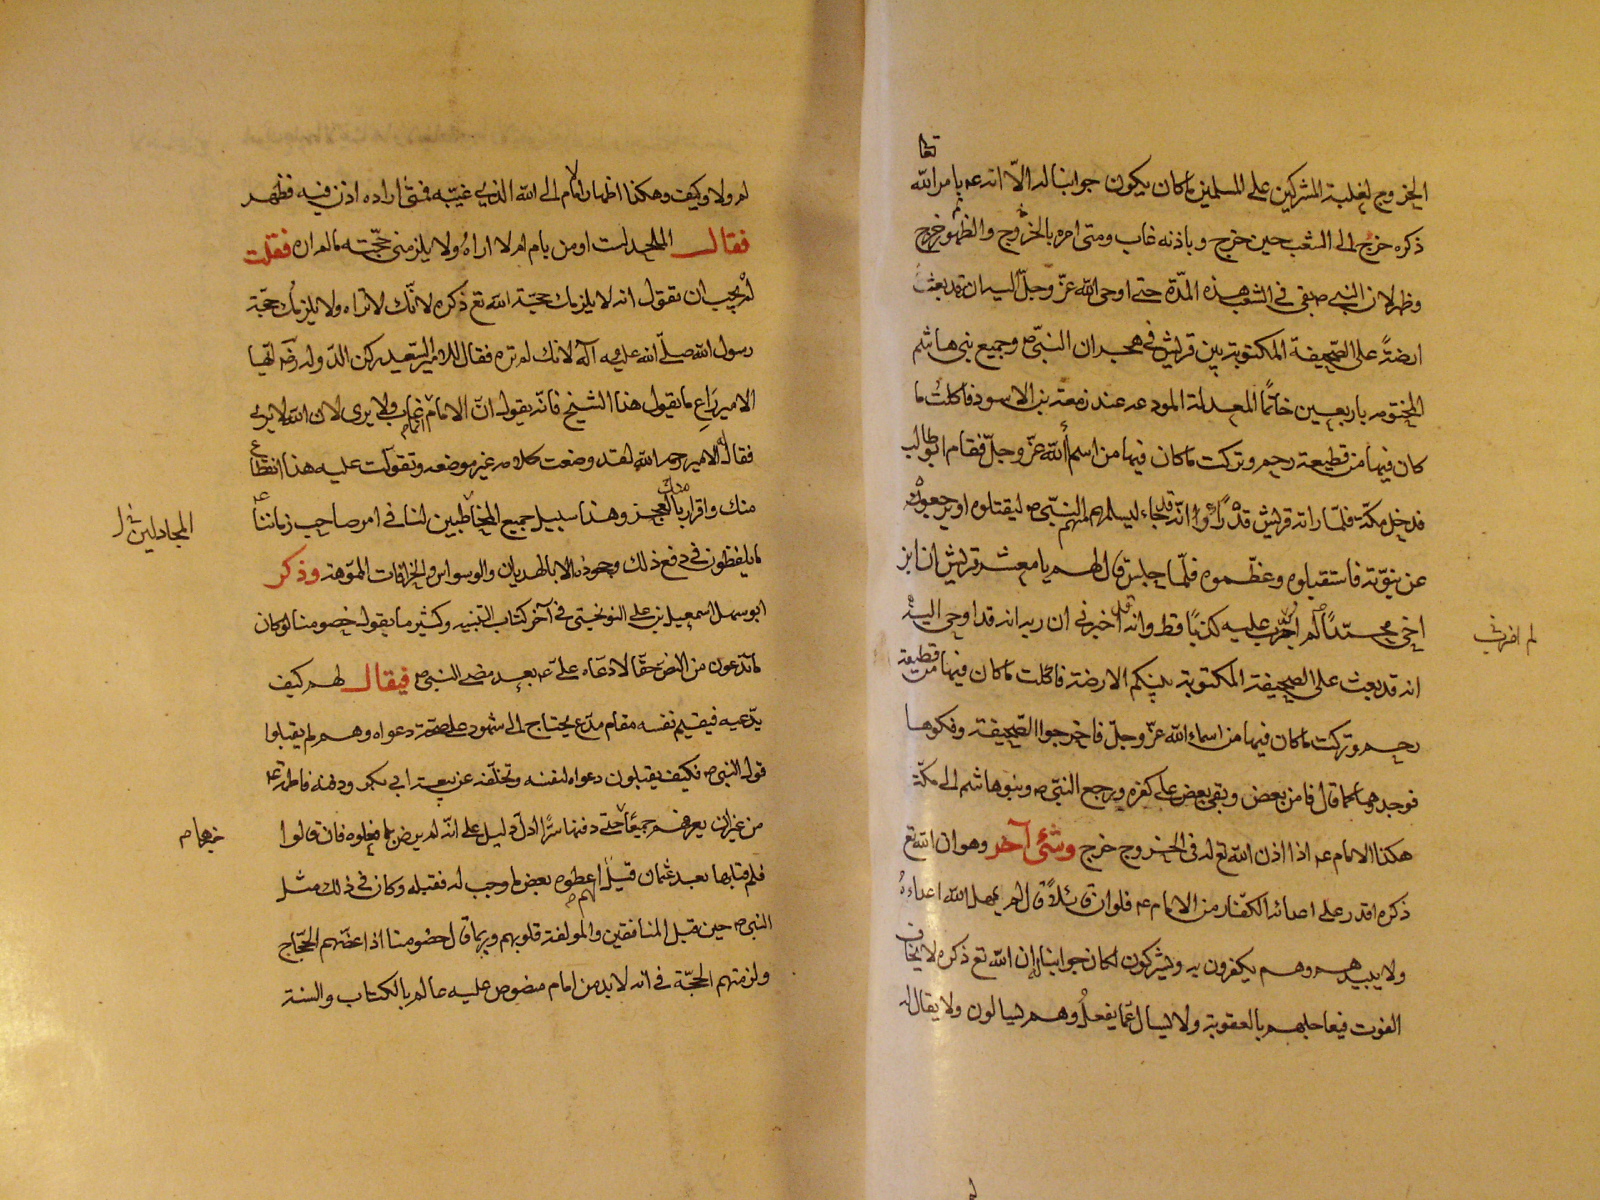 تعا
الخروج لغلبة المشركين على المسلمين ما كان يكون جوابنا له الّا انه عه بامر الله
ذكره خرج الى الشعب حين خرج وباذنه غاب ومتى امره بالخروج والظهور خرج
وظهر لان النبي ص بقى فى الشعب هذه المدّة حتى اوحى الله عزّ وجلّ اليه انه قد بعث
ارضةً على الصّحيفة المكتوبة بين قريش فى هجران النبيّ ص وجميع بنى هاشم
المختومه باربعين خاتمًا المعدلة المودعه عند زمعة بن الاسود فاكلت ما
كان فيها من قطيعة رحم وتركت ما كان فيها من اسم الله عزّ وجلّ فقام ابو طالب
فدخل مكّة فلمّا راته قريش قدّروا انّه قد جاء ليسلم اليهم النبيّ ص ليقتلوه او يرجعوه
عن نبوّته فاستقبلوه وعظّموه فلمّا جلس قال لهم يا معشر قريش ان ابن
اخى محمّدًا لم اجرب عليه كذبًا قط وانه قد اخبرنى ان ربه انه قد اوحى اليه
لم اضرب
انه قد بعث على الصحيفة المكتوبة بينكم الارضة فاكلت ما كان فيها من قطيعة
رحم وتركت ما كان فيها من اسماء الله عزّ وجلّ فاخرجوا الصّحيفة وفكوها
فوجدوها كما قال فامن بعض وبقى بعض على كفره ورجع النبيّ ص وبنو هاشم الى مكّة
هكذا الامام عه اذا اذن الله تع له فى الخروج خرج وشئ آخر وهو ان الله تع
ذكره اقدر على اعدائه الكفّار من الامام عه فلو ان قائلًا قال لم يمهل الله اعداءه
ولا يبيدهم وهم يكفرون به ويشركون لكان جوابنا له ان الله تع ذكره لا يخاف
الفوت فيعاجلهم بالعقوبة ولا يسال عمّا يفعل وهم يسالون ولا يقال له
لم ولا وكيف وهكذا اظهار الامام الى الله الذى غيّبه فمتى اراده اذن فيه فظهر
فقال الملحد لست اومن بامام لا اراه ولا يلزمنى حجّته ما لم اره فقلت
له يجب ان تقول انه لا يلزمك حجّة الله تع ذكره لانّك لا تراه ولا يلزمك حجّة
رسول الله صلّى الله عليه وآله لانك لم تره فقال للامير السّعيد ركن الدّولة رضه ايّها
الامير راع ما يقول هذا الشيخ فانّه يقول انّ الامام انما غاب ولا يرى لان الله لا يرى
فقال له الامير رحمه الله لقد وضعت كلامه غير موضعه وتقوّلت عليه هذا انقطاع
منك واقرار بالعجز وهذا سبيل جميع المخاطبين لنا فى امر صاحب زماننا عه
المجادلين
ما يلفظون فى دفع ذلك وجحوده الا بالهذيان والوسواس والخرافات المموّهة وذكر
ابو سهل اسمعيل بن على النوبختى فى آخر كتاب التنبيه وكثير ما يقول خصومنا لو كان
ما تدعون من النص حقّا لادعاه علىّ عه بعد مضى النبى ص فيقال لهم كيف
يدّعيه فيقيم نفسه مقام مدّع يحتاج الى شهود على صحّة دعواه وهم لم يقبلوا
قول النبى ص فكيف يقبلون دعواه لنفسه وتخلّفه عن بيعة ابى بكر ودفنه فاطمة عه
من غير ان يعرفهم جميعًا حتى دفنها سرًّا ادلّ دليل على انّه لم يرض بما فعلوه فان قالوا
خبرها م
فلم قبلها بعد عثمان قيل لهم اعطوه بعض ما وجب له فقبله وكان فى ذلك مثل
النبى ص حين قبل المنافقين والمولفة قلوبهم وربما قال خصومنا اذا عضّهم الحجّاج
ولزمتهم الحجّة فى انه لا بد من امام منصوص عليه عالم بالكتاب والسنة